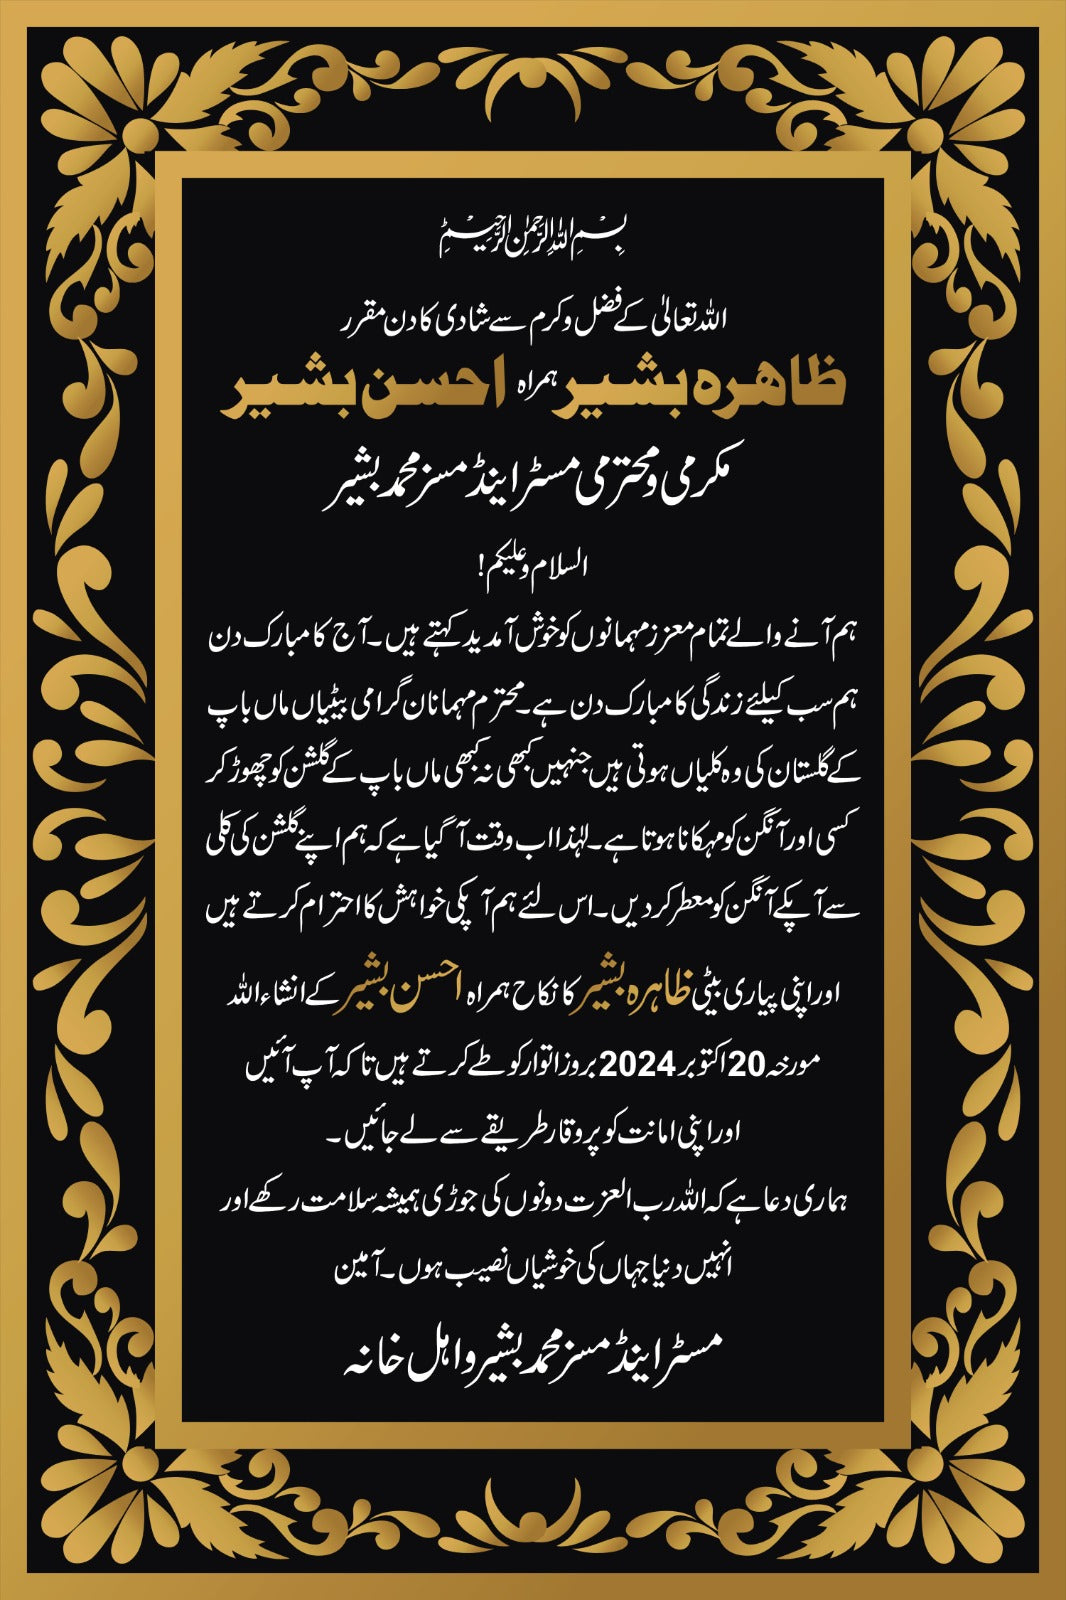 بسم اللہ الرحمٰن الرحیم
اللہ تعالیٰ کے فضل و کرم سے شادی کا دن مقرر
ظاہرہ بشیر ہمراہ احسن بشیر
مکرمی و محترمی مسٹر اینڈ مسز محمد بشیر
السلام و علیکم!
ہم آنے والے تمام معزز مہمانوں کو خوش آمدید کہتے ہیں۔ آج کا مبارک دن
ہم سب کیلئے زندگی کا مبارک دن ہے۔ محترم مہمانان گرامی بیٹیاں ماں باپ
کے گلستان کی وہ کلیاں ہوتی ہیں جنہیں کبھی نہ کبھی ماں باپ کے گلشن کو چھوڑ کر
کسی اور آنگن کو مہکانا ہوتا ہے۔ لہٰذا اب وقت آ گیا ہے کہ ہم اپنے گلشن کی کلی
سے آپکے آنگن کو معطر کر دیں۔ اس لئے ہم آپکی خواہش کا احترام کرتے ہیں
اور اپنی پیاری بیٹی ظاہرہ بشیر کا نکاح ہمراہ احسن بشیر کے انشاء اللہ
مورخہ 20 اکتوبر 2024 بروز اتوار کو طے کرتے ہیں تاکہ آپ آئیں
اور اپنی امانت کو پروقار طریقے سے لے جائیں۔
ہماری دعا ہے کہ اللہ رب العزت دونوں کی جوڑی ہمیشہ سلامت رکھے اور
انہیں دنیا جہاں کی خوشیاں نصیب ہوں۔ آمین
مسٹر اینڈ مسز محمد بشیر و اہل خانہ